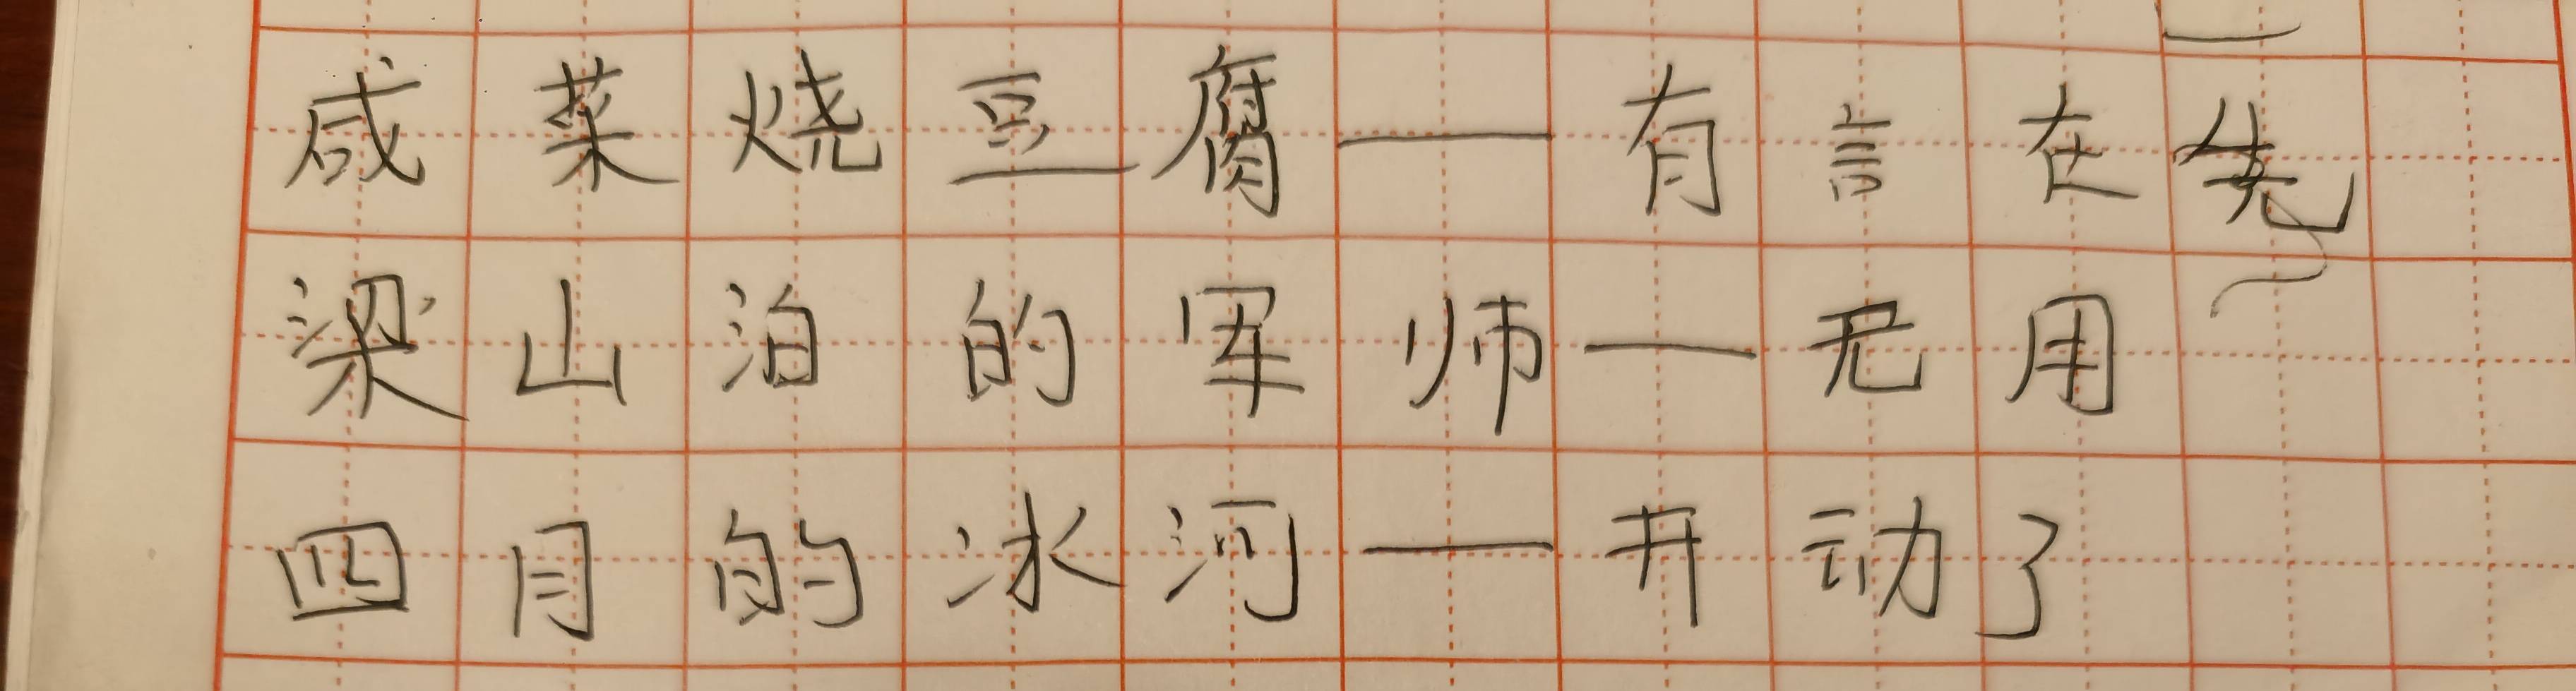 咸菜烧豆腐—有言在先
梁山泊的军师—无用
四月的冰河—开动了